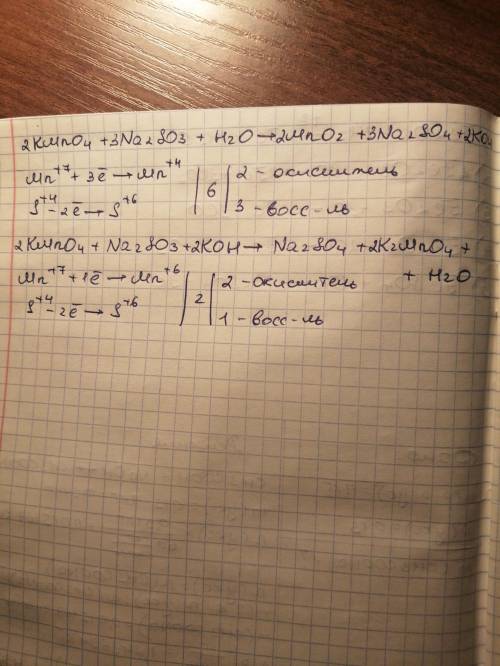 2KMnO4 + 3Na2SO3 + H2O → 2MnO2 + 3Na2SO4 + 2KO
Mn+7 + 3ē → Mn+4 | 6 | 2 - окислитель
S+4 - 2ē → S+6 3 - восс-ль
2KMnO4 + Na2SO3 + 2KOH → Na2SO4 + 2K2MnO4 +
+ H2O
Mn+7 + 1ē → Mn+6 | 2 | 2 - окислитель
S+4 - 2ē → S+6 1 - восс-ль